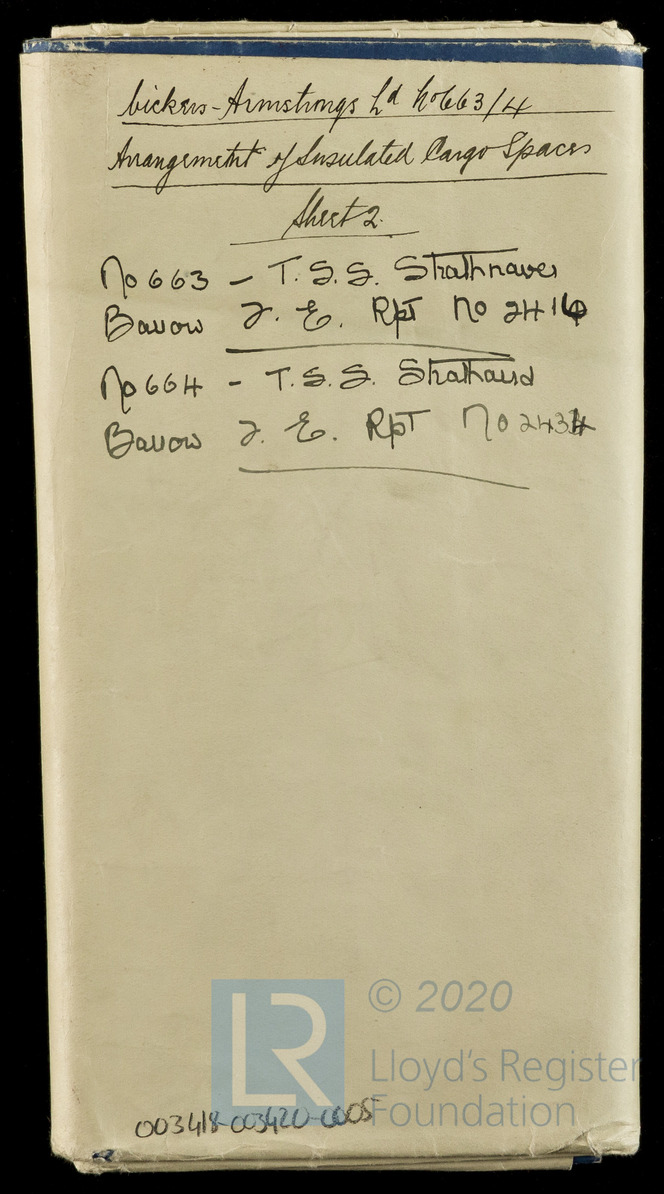 Vickers-Armstrongs Ld No 663/4
Arrangement of Insulated Cargo Spaces
Sheet 2.
No 663 - T.S.S. Strathnaver
Barrow F.E. Rpt No
No 664 - T.S.S. Strathaird
Barrow F.E. Rpt No
© 2020
LR
Lloyd's Register
Foundation
003418-003420-0005